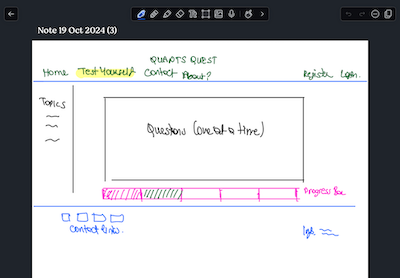 Note 19 Oct 2024 (3)
QUANTS QUEST
Home Test Yourself Contact About? Register Login.
TOPICS
Questions (one at a time)
Progress Bar
Contact links.